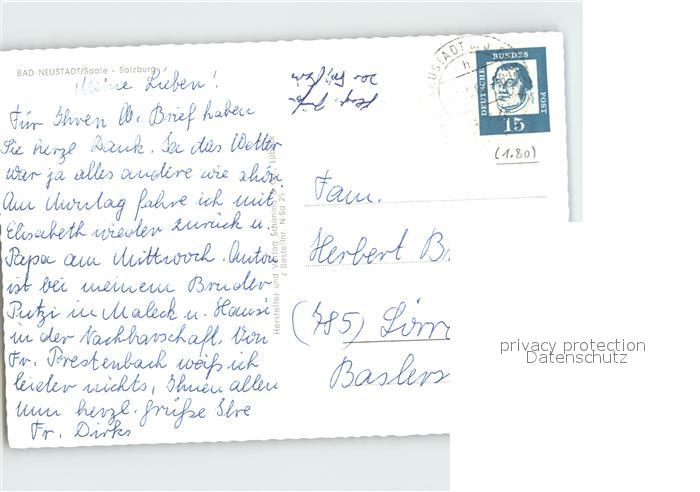 BAD NEUSTADT/Saale - Salzburg
Meine Lieben!
Für Ihren lb. Brief haben
Sie herzl. Dank. Ja das Wetter
war ja alles andere wie schön
Am Montag fahre ich mit
Elisabeth wieder zurück u.
Papa am Mittwoch. Anton
ist bei meinem Bruder
Putzi in Maleck u. Hansi
in der Nachbarschaft. Von
Fr. Prestenbach weiß ich
leider nichts, Ihnen allen
nun herzl. Grüße Ihre
Fr. Dirks
Hersteller und Verlag Schöning LÜBECK
Bestellnr. N-Sa 25
DEUTSCHE BUNDES POST
15
(1.80)
Fam.
Herbert B
(785) Lörr
Baslers
privacy protection
Datenschutz